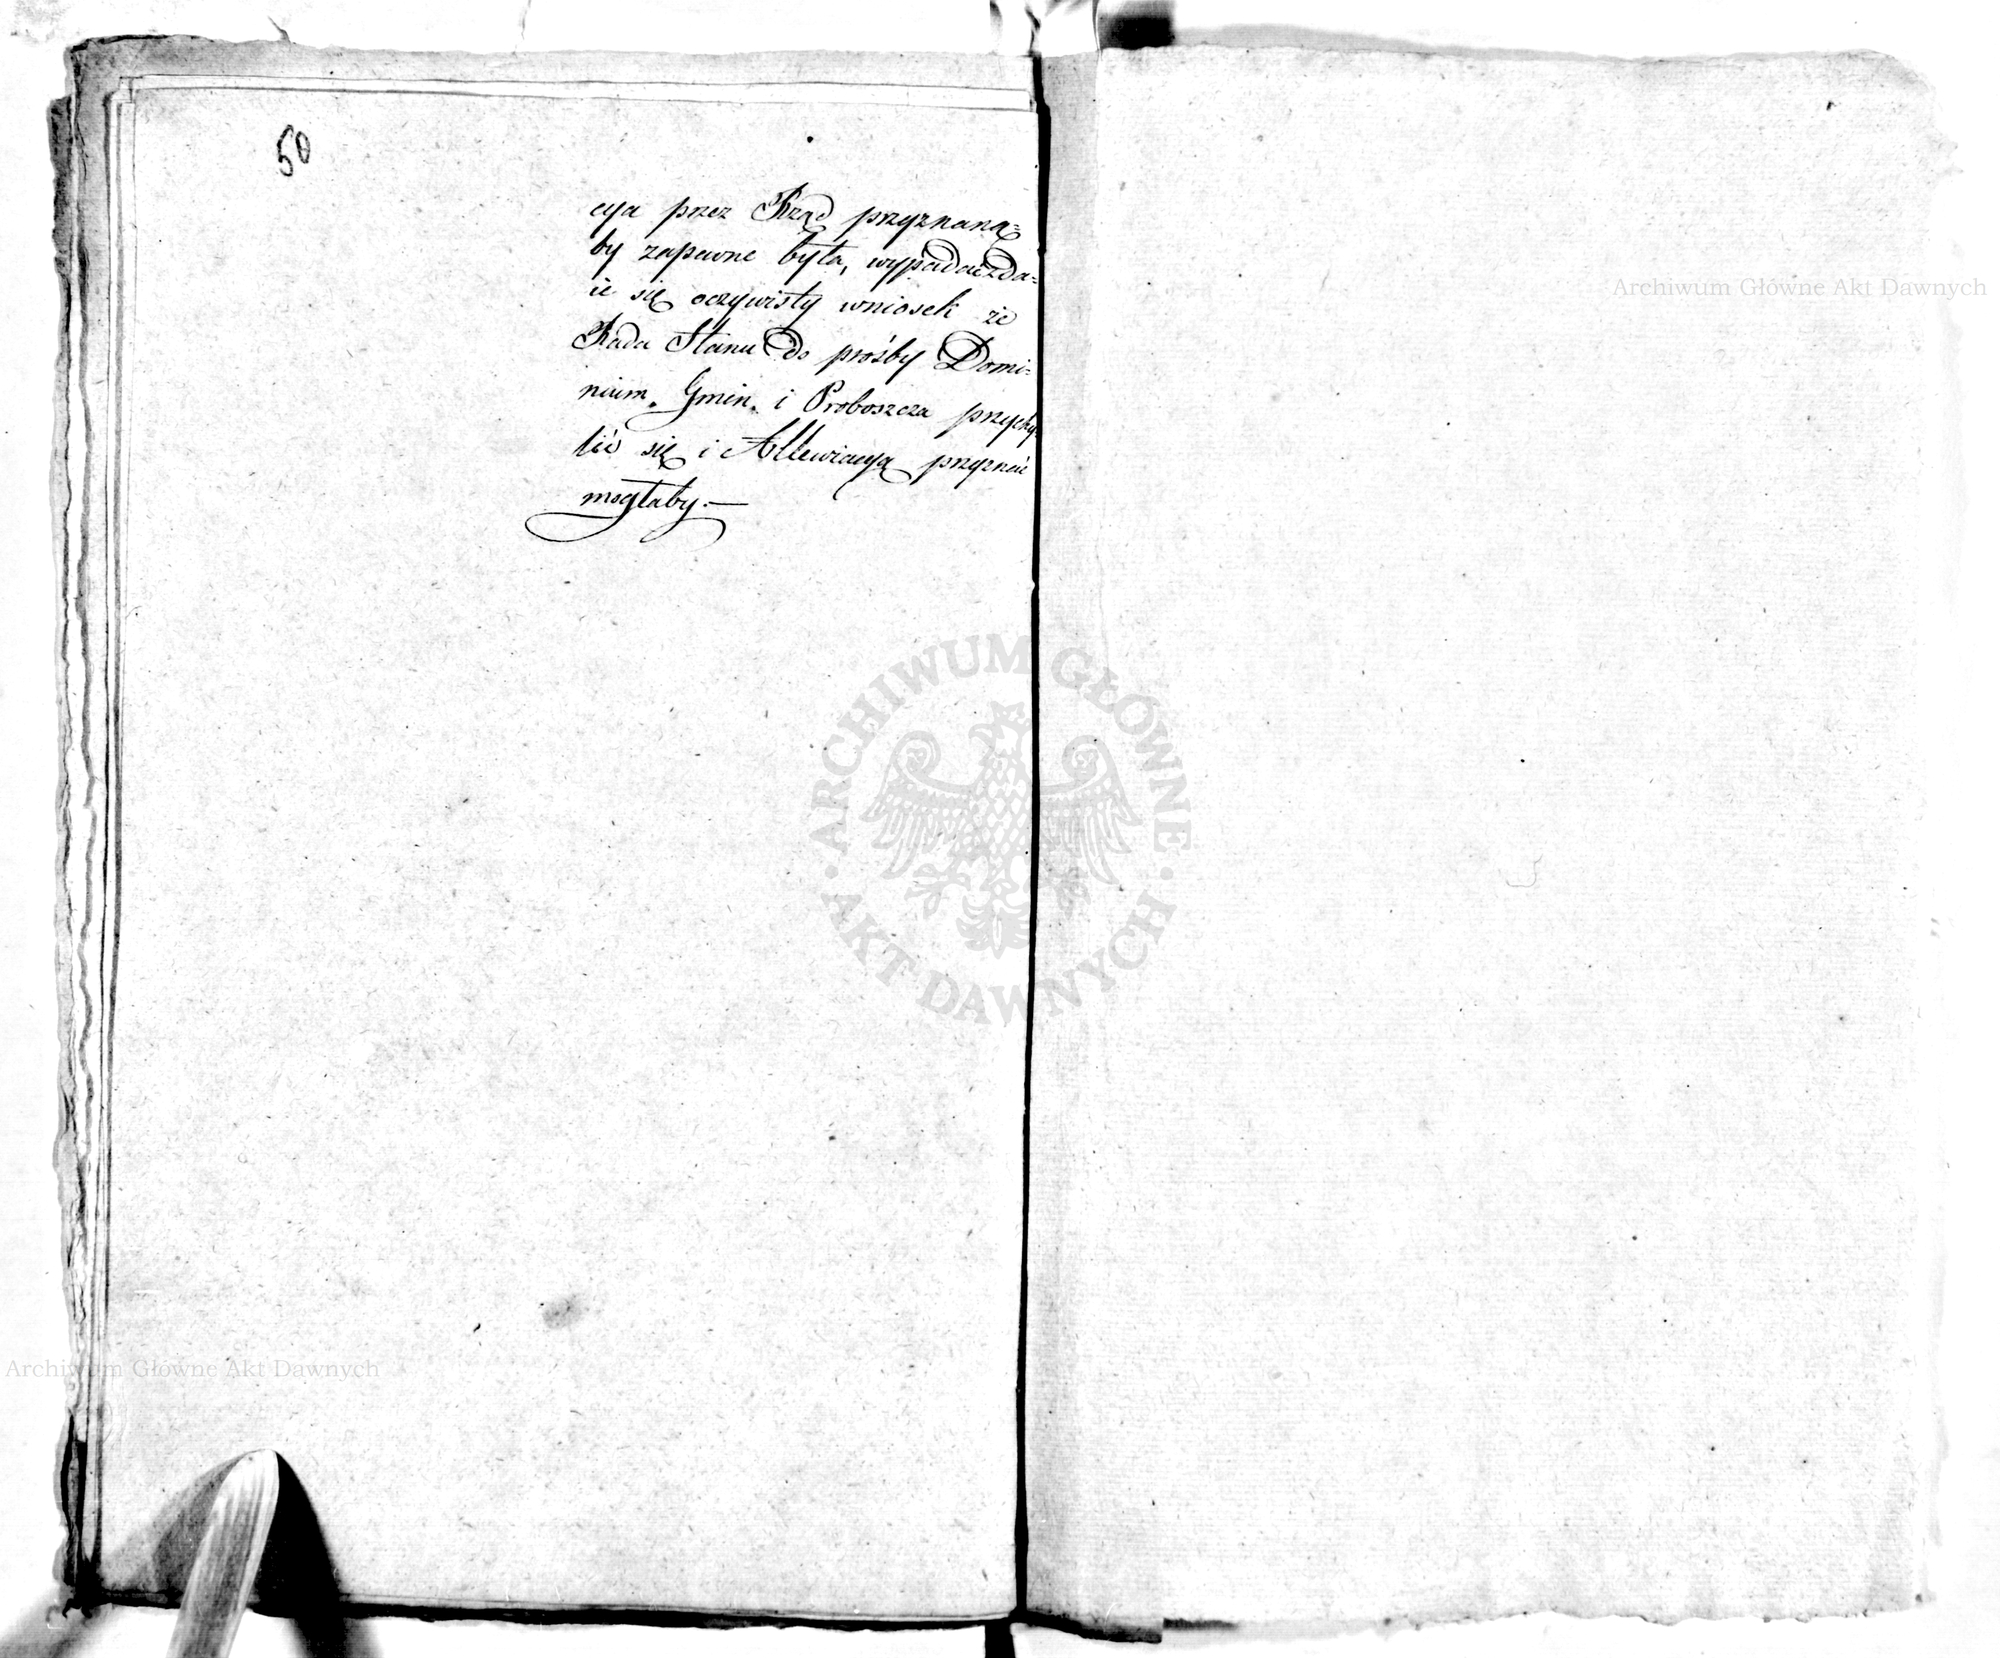 50
cya przez Rząd przyznaną=
by zapewne była, wypadać zda=
ie się oczywisty wniosek że
Rada Stanu do prośby Domi=
nium, Gmin, i Proboszcza przychy=
lić się i Allewiacyą przyznać
mogłaby.—
Archiwum Główne Akt Dawnych
ARCHIWUM GŁÓWNE
· AKT DAWNYCH ·
Archiwum Główne Akt Dawnych